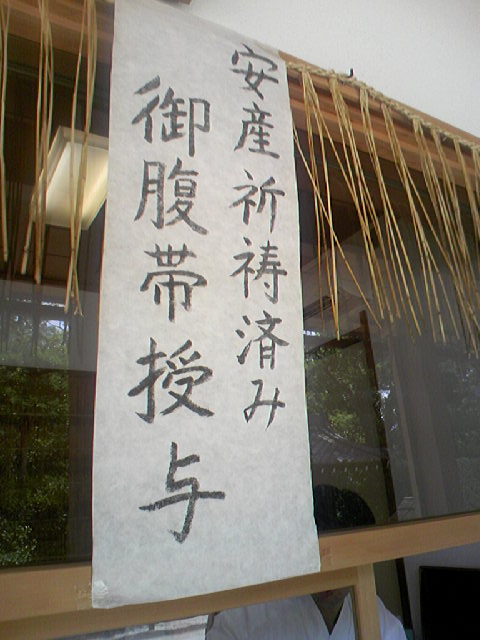 安産祈祷済み
御腹帯授与